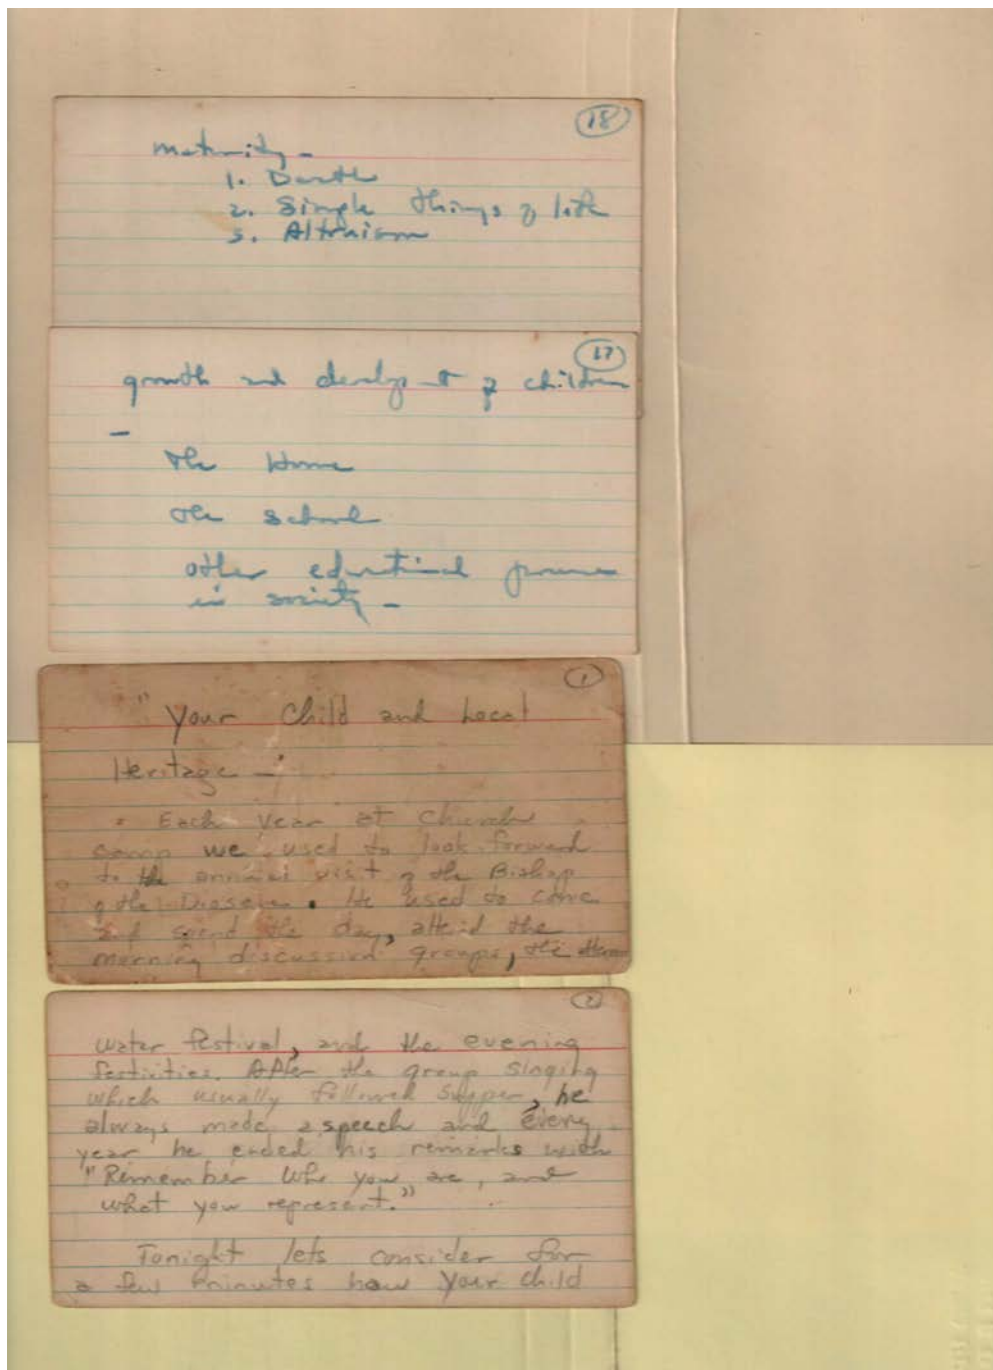 18
maturity -
1. Death
2. Simple things of life
3. Altruism
17
growth and development of children
-
the Home
the school
other educational forces
in society -
1
"Your Child and Local
Heritage -"
Each year at Church
camp we used to look forward
to the annual visit of the Bishop
of the Diocese. He used to come
and spend the day, attend the
morning discussion groups, the
2
water festival, and the evening
festivities. After the group singing
which usually followed supper, he
always made a speech and every
year he ended his remarks with
"Remember who you are, and
what you represent."
Tonight lets consider for
a few minutes how your child